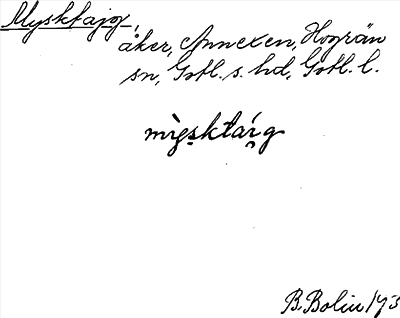 Mysktajg,
åker, Annexen, Hogrän
sn, Gotl. s. hd, Gotl. l.
mìẹsktáịg
B. Bolin